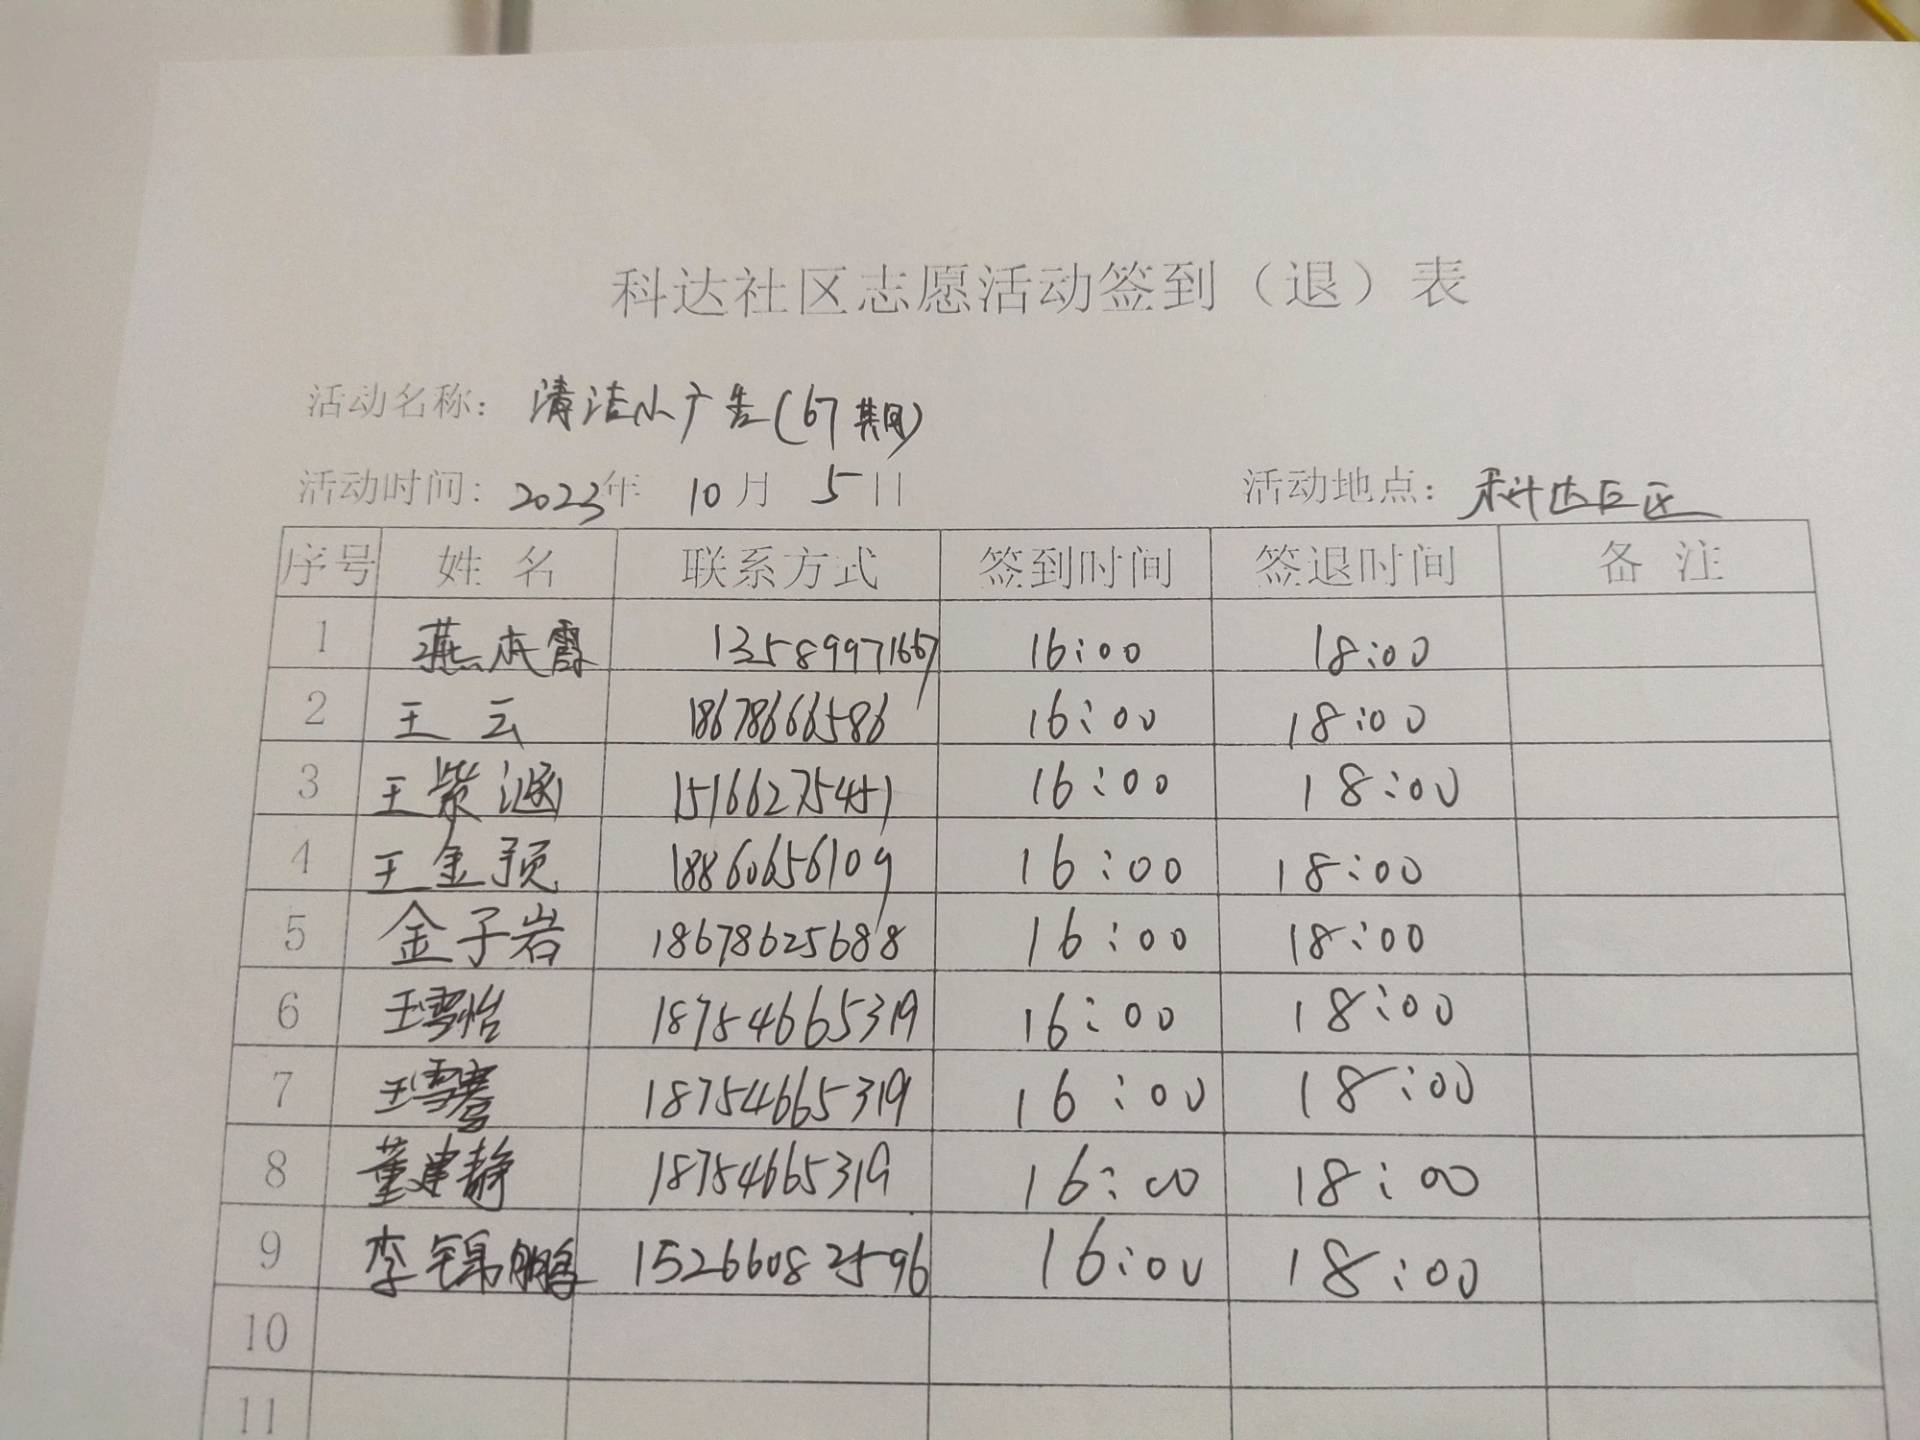 科达社区志愿活动签到（退）表
活动名称：清洁小广告（67期）
活动时间：2023年 10月 5日 活动地点：科达B区
序号 姓名 联系方式 签到时间 签退时间 备注
1 燕本霞 13589971667 16:00 18:00
2 王云 18678666586 16:00 18:00
3 王紫涵 15166275451 16:00 18:00
4 王金预 18860656109 16:00 18:00
5 金子岩 18678625688 16:00 18:00
6 王雪怡 18754665319 16:00 18:00
7 王雪 18754665319 16:00 18:00
8 董建静 18754665319 16:00 18:00
9 李锦鹏 15266082596 16:00 18:00
10
11